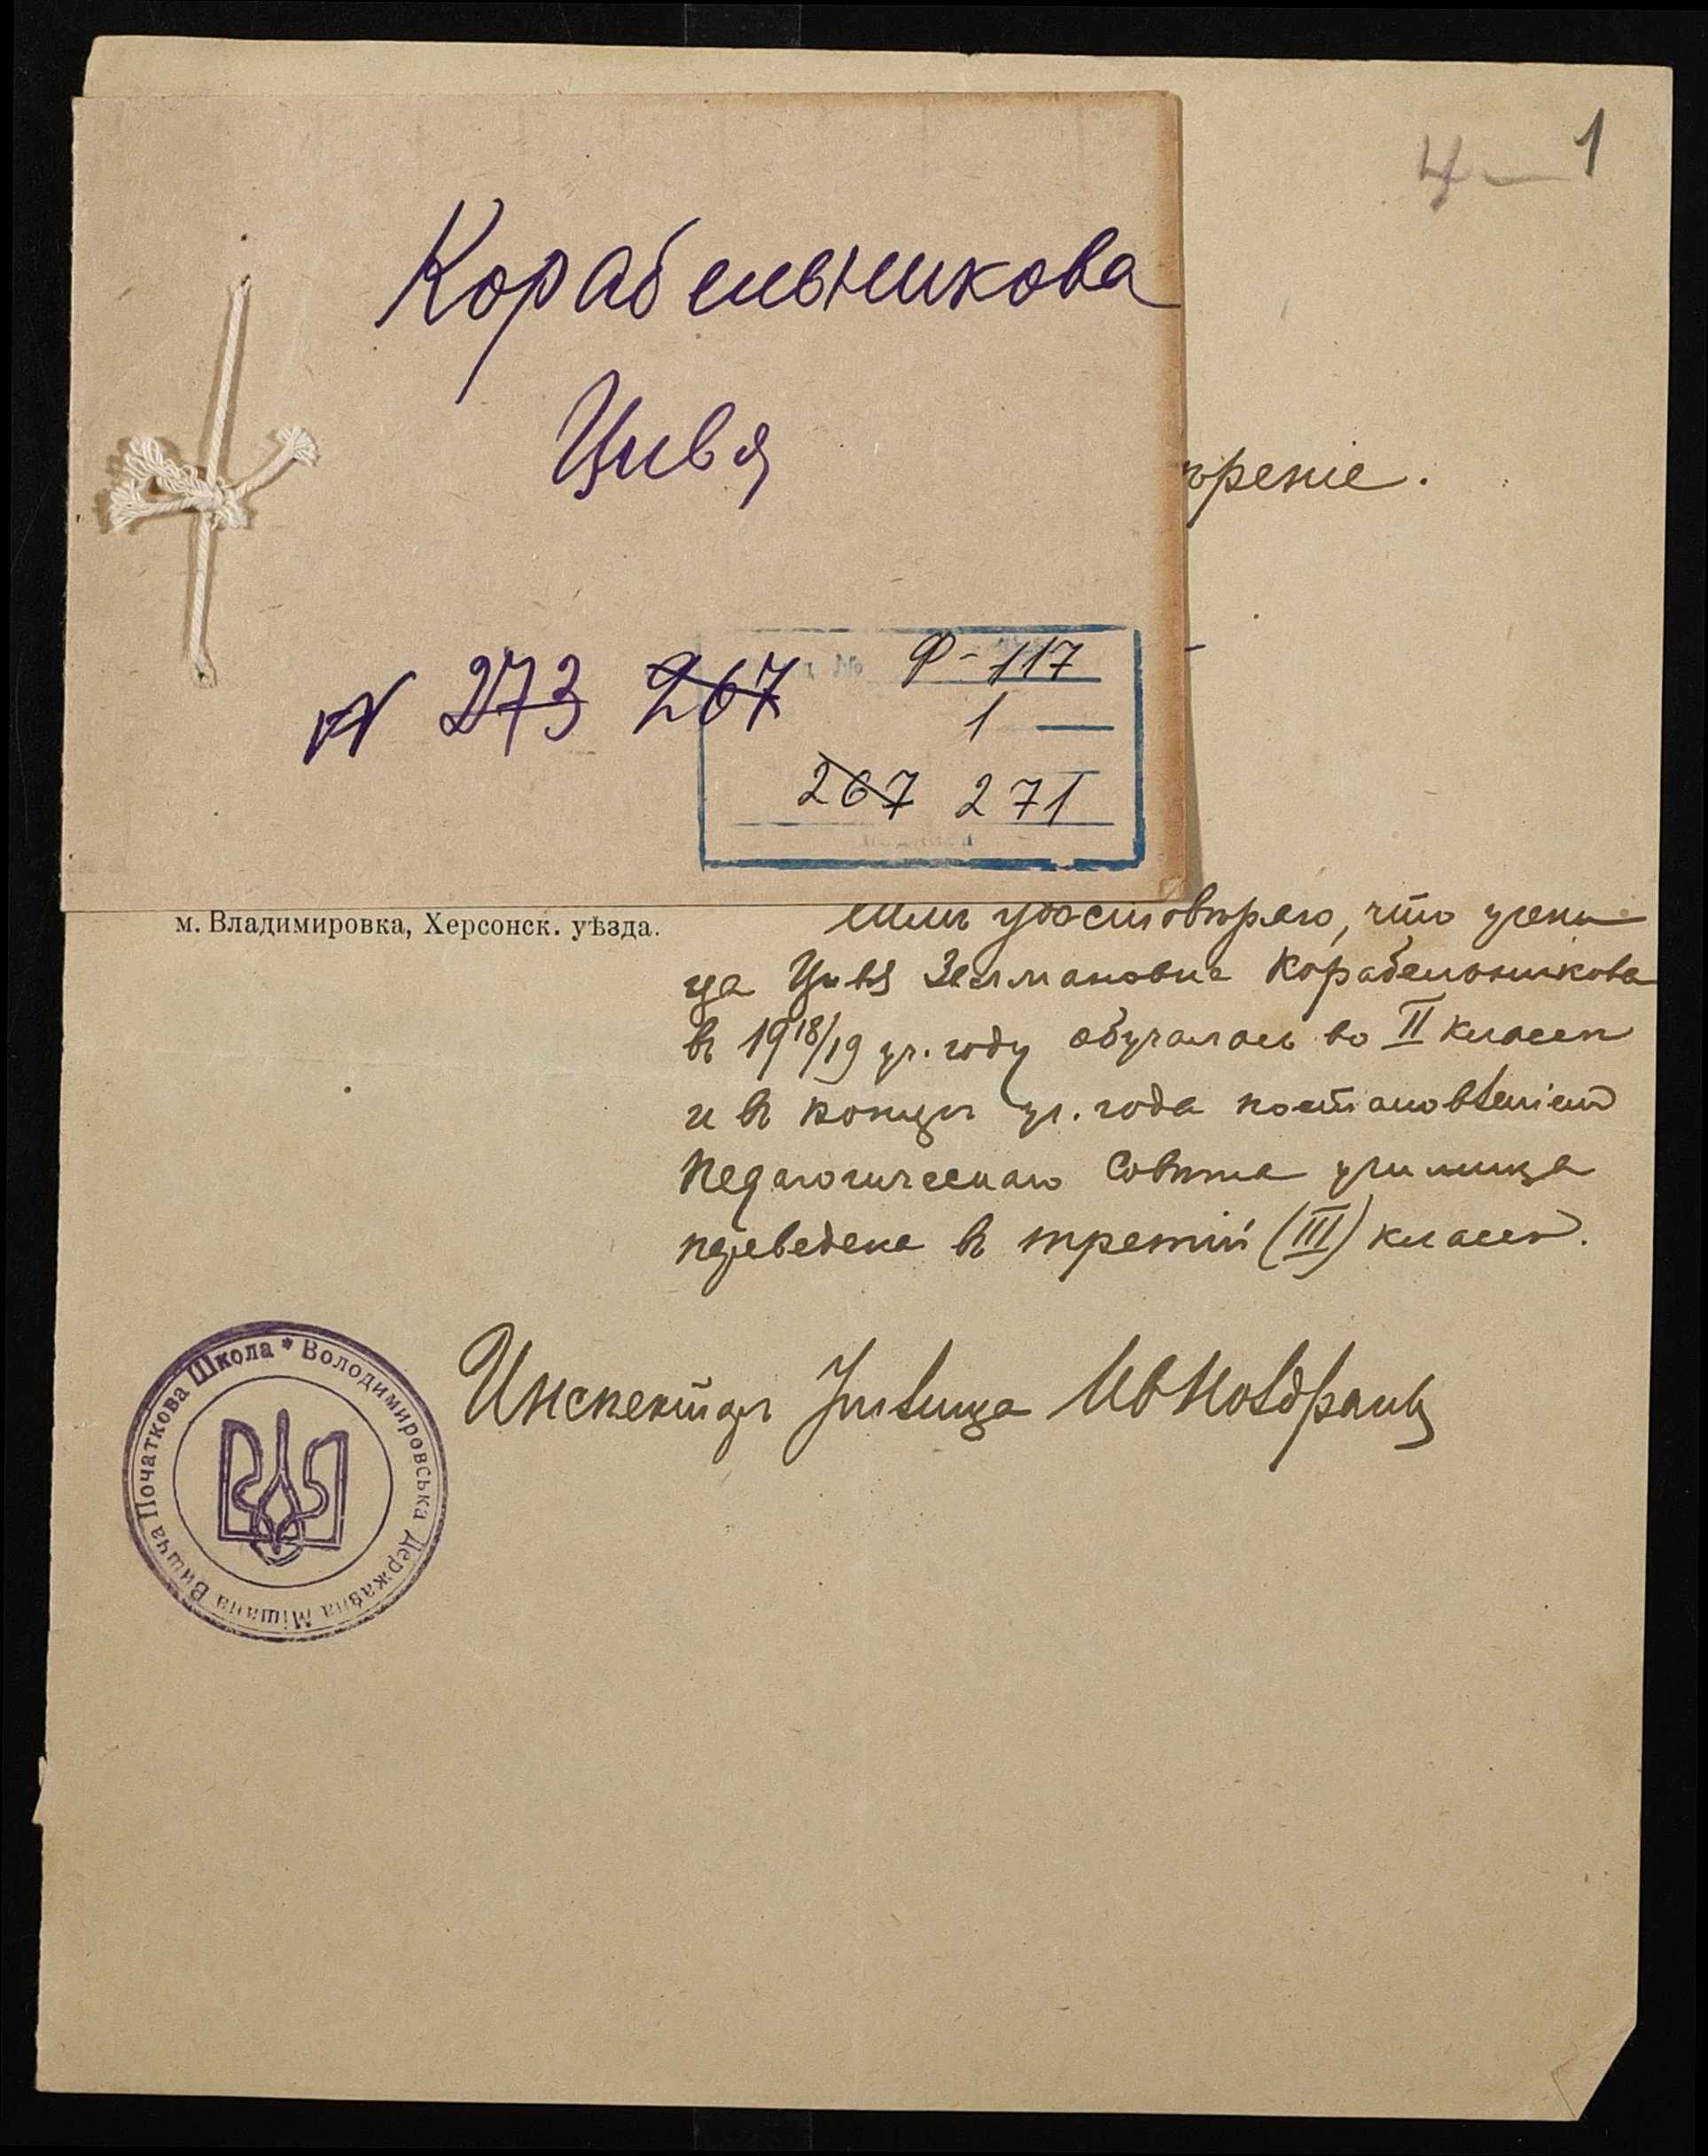 4 — 1
Корабельникова
Цивя
ѣреніе.
N 273 267
Ф-117
1
267 271
м. Владимировка, Херсонск. уѣзда.
Симъ удостовѣряю, что учени
ца Цивя Зелмановна Корабельникова
въ 1918/19 уч. году обучалась во II классѣ
и въ концѣ уч. года постановленіемъ
Педагогическаго Совѣта училища
переведена въ третій (III) классъ.
Инспекторъ Училища
Володимировська Державна Мішана Вишча Початкова Школа *